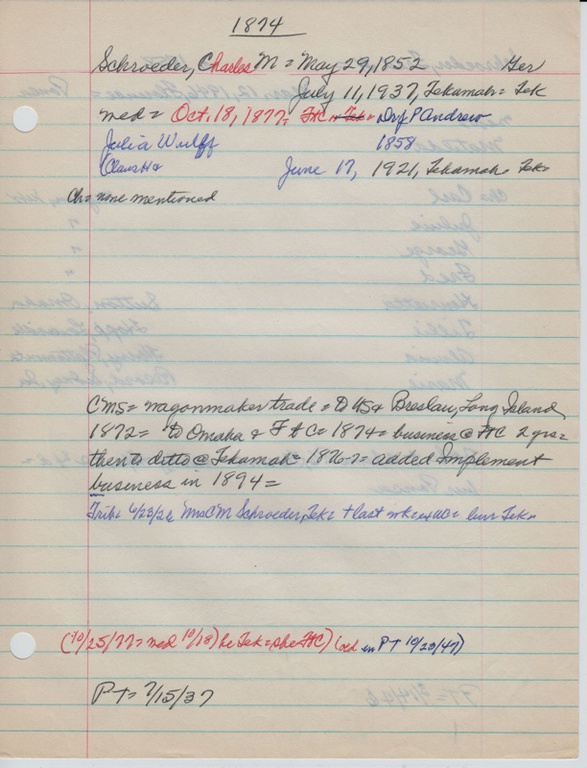 1874
Schroeder, Charles M = May 29, 1852 Ger
July 11, 1937, Tekamah = Tek
med = Oct. 18, 1877 = FtC = Tek = Dr J P Andrew
Julia Wulff 1858
Claus H & June 17, 1921, Tekamah = Tek =
Ch = none mentioned
CMS = wagonmaker trade = to US & Breslau, Long Island
1872 = to Omaha & Ft C = 1874 = business @ FtC 2 yrs =
then to ditto @ Tekamah = 1876-7 = added Implement
business in 1894 =
Trib = 6/23/21 Mrs CM Schroeder, Tek = + last wk = bur Tek =
(10/25/77 = med 10/18) he Tek = she FtC) ( in PT 10/23/47)
PT = 7/15/37